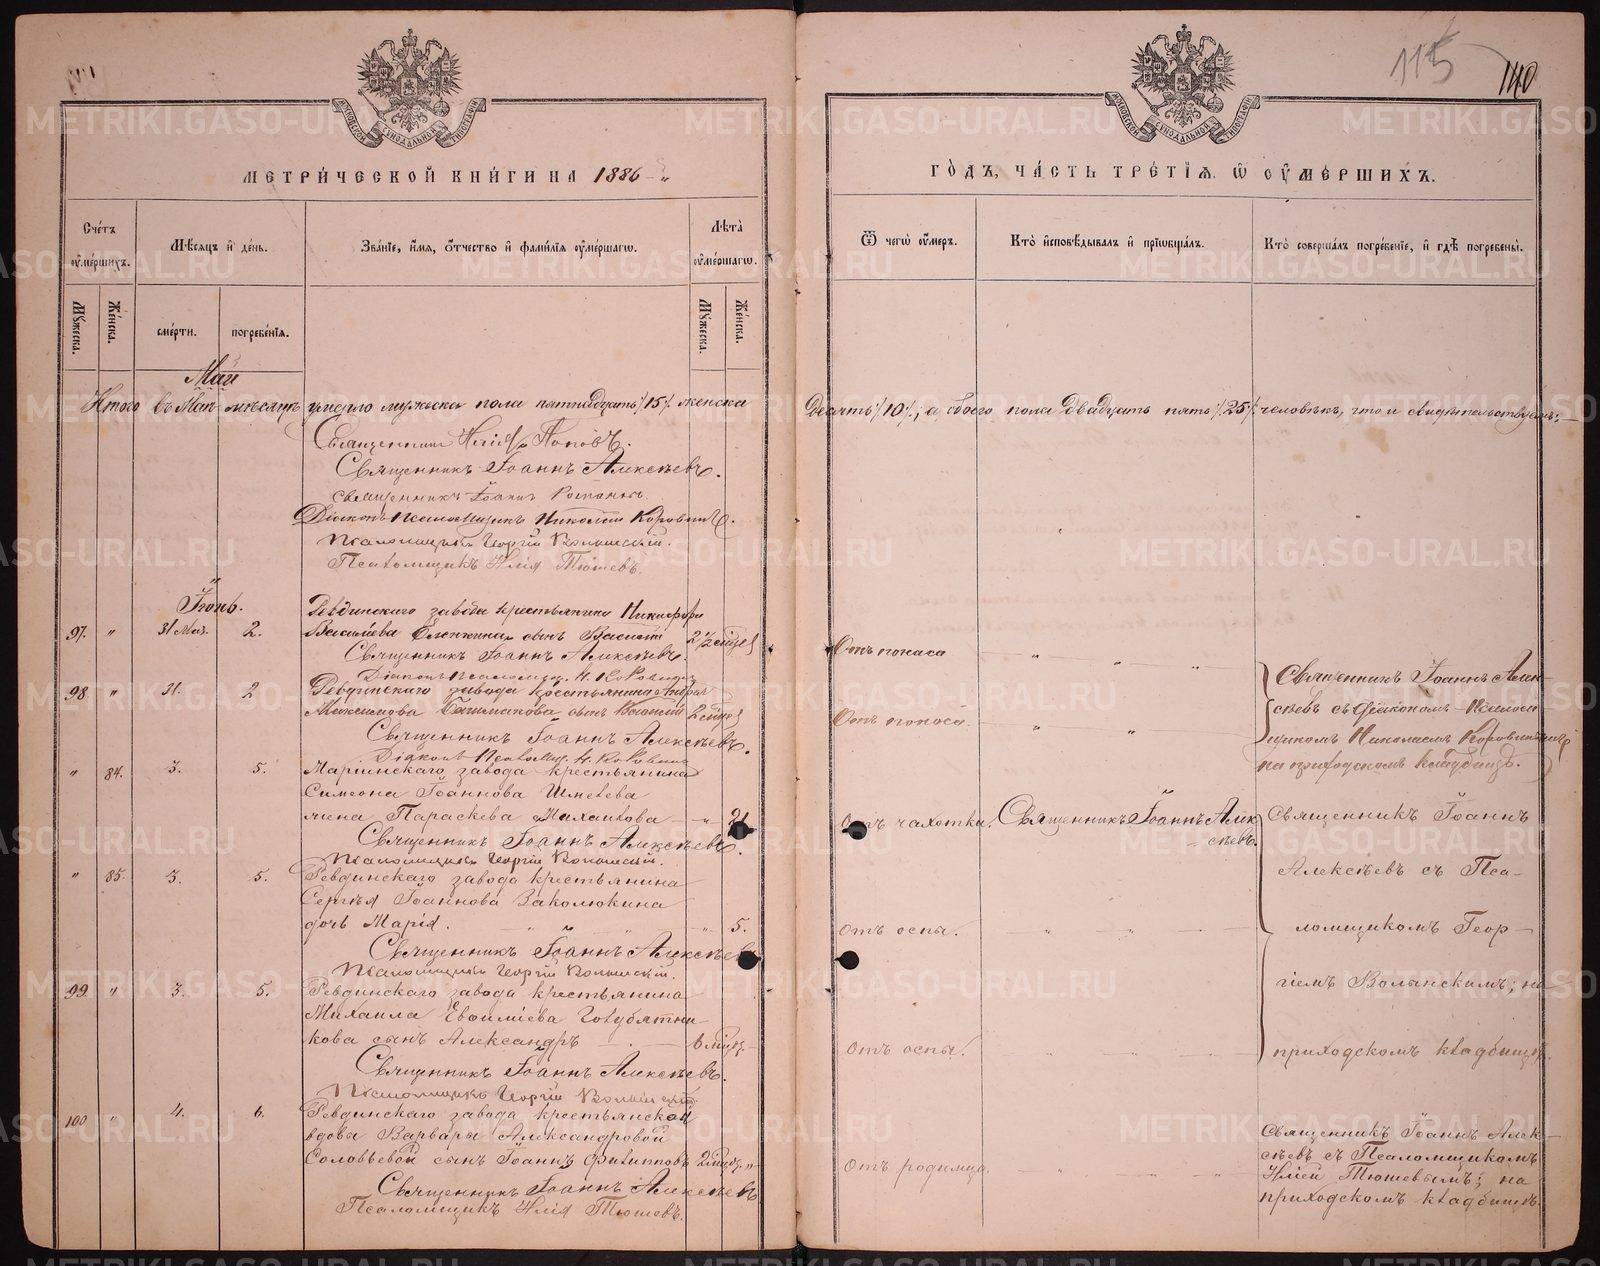 115
140
МОСКОВСКОЙ СѴНОДАЛЬНОЙ ТИПОГРАФІИ
МОСКОВСКОЙ СѴНОДАЛЬНОЙ ТИПОГРАФІИ
МЕТРИЧЕСКОЙ КНИГИ НА 1886
ГОДЪ, ЧАСТЬ ТРЕТІЯ, Ѿ ОУМЕРШИХЪ.
Счетъ оумершихъ.
Мѣсяцъ и день.
Званіе, имя, отчество и фамилія оумершагѡ.
Лѣта оумершагѡ.
Ѿ чегѡ оумеръ.
Кто исповѣдывалъ и пріобщалъ.
Кто совершалъ погребеніе, и гдѣ погребены.
Мужеска.
Женска.
смерти.
погребенія.
Мужеска.
Женска.
Май
Итого въ Маѣ мѣсяцѣ умерло мужеска пола пятнадцать /15/. женска
десять /10/; а обоего пола двадцать пять /25/ человѣкъ, что и свидѣтельствуемъ:
Священникъ Илія Поповъ.
Священникъ Іоаннъ Алексѣевъ.
Священникъ Іоаннъ
Діаконъ-Псаломщикъ Николай
Псаломщикъ Георгій
Псаломщикъ Илія Тюшевъ.
Іюнь.
97. " 31 Мая. 2.
Ревдинскаго завода крестьянина Никифора
Васильева сынъ Василій 2 1/2
Отъ поноса
Священникъ Іоаннъ Алексѣевъ.
Діаконъ-Псаломщ. Н.
98 " 31. 2
Ревдинскаго завода крестьянина
Максимова сынъ
Отъ поноса
Священникъ Іоаннъ Алексѣевъ.
Діаконъ Псаломщ. Н.
Священникъ Іоаннъ Алек-
сѣевъ съ Діакономъ-Псалом-
щикомъ Николаемъ
на приходскомъ кладбищѣ.
" 84. 3. 5.
Маріинскаго завода крестьянина
Симеона Іоаннова
жена Параскева Михаилова " 21
Отъ чахотки. Священникъ Іоаннъ Алек-
сѣевъ.
Священникъ Іоаннъ Алексѣевъ.
Псаломщикъ Георгій
" 85. 3. 5.
Ревдинскаго завода крестьянина
Сергѣя Іоаннова Заколюкина
дочь Марія. " 5.
Отъ оспы.
Священникъ Іоаннъ Алексѣевъ
Псаломщикъ Георгій
99 " 3. 5.
Ревдинскаго завода крестьянина
Михаила Евфиміева Голубятни
кова сынъ Александръ 6 мѣсяц.
Отъ оспы.
Священникъ Іоаннъ Алексѣевъ.
Псаломщикъ Георгій
Священникъ Іоаннъ
Алексѣевъ съ Пса-
ломщикомъ Геор-
гіемъ Волынскимъ; на
приходскомъ кладбищѣ.
100 " 4. 6.
Ревдинскаго завода крестьянской
вдовы Варвары Александровой
Соловьевой сынъ Іоаннъ Филипповъ 2 мѣсяц. "
Отъ родимца.
Священникъ Іоаннъ Алексѣевъ
Псаломщикъ Илія Тюшевъ.
Священникъ Іоаннъ Алек-
сѣевъ съ Псаломщикомъ
Иліей Тюшевымъ; на
приходскомъ кладбищѣ.
METRIKI.GASO-URAL.RU